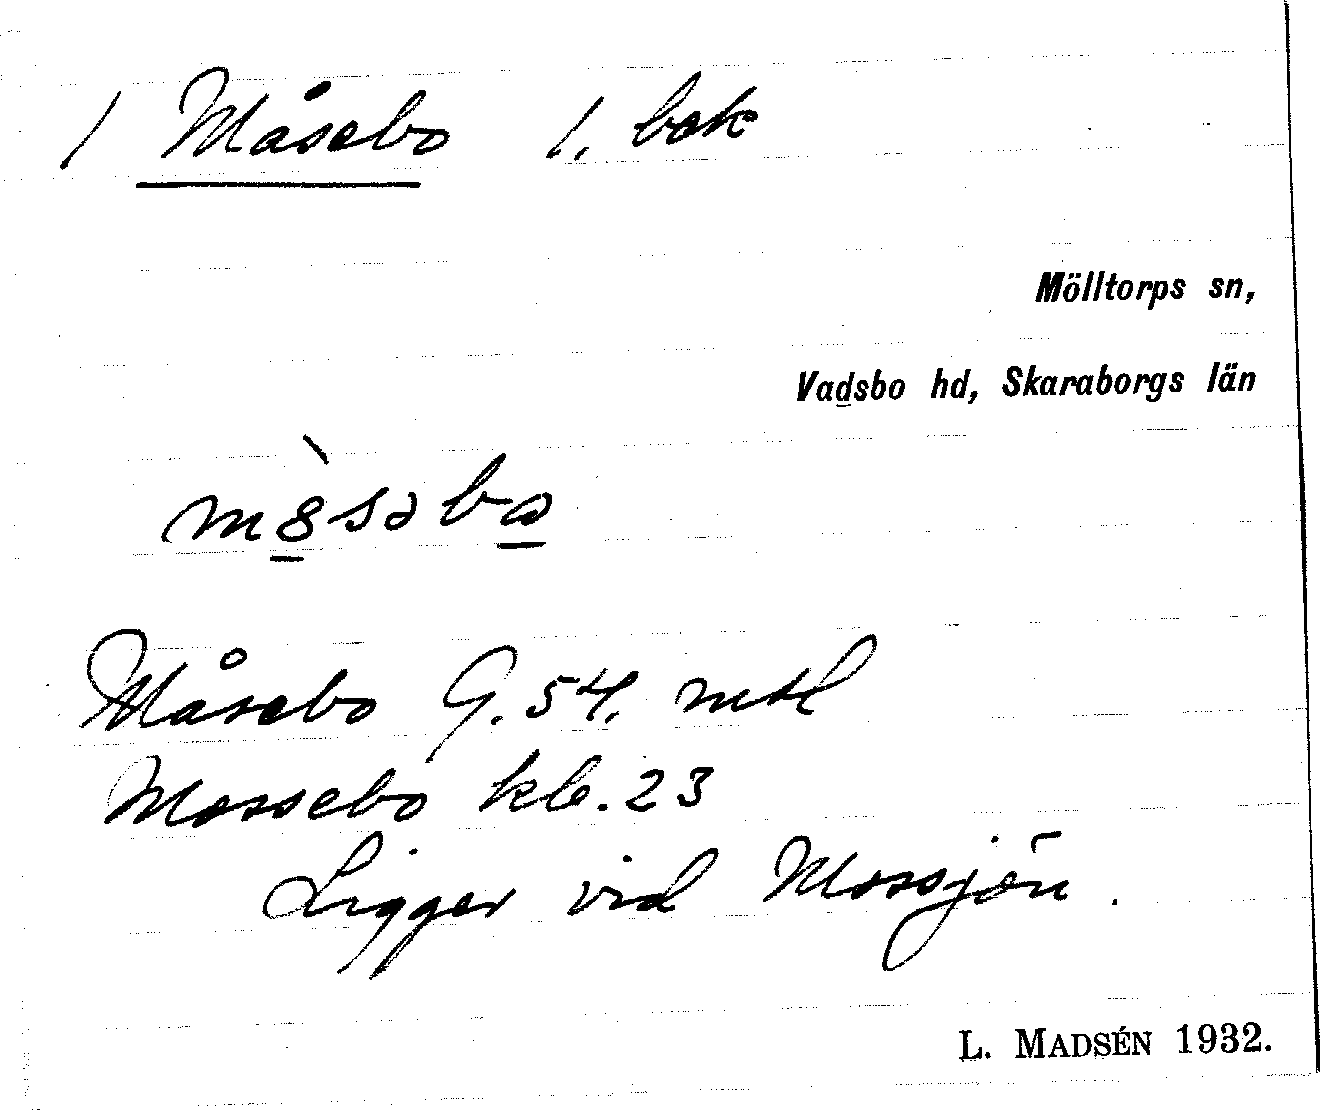 / Måsebo 1. bek
Mölltorps sn,
Vadsbo hd, Skaraborgs län
Måsebo G. 54. mtl
Mossebo kb. 23
Ligger vid Mossjön.
L. MADSÉN 1932.